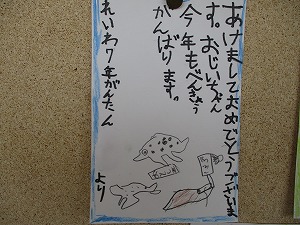 あけましておめでとうございま
す。おじいちゃん
今年もべんきょう
がんばります。
れいわ7年がんたん
より